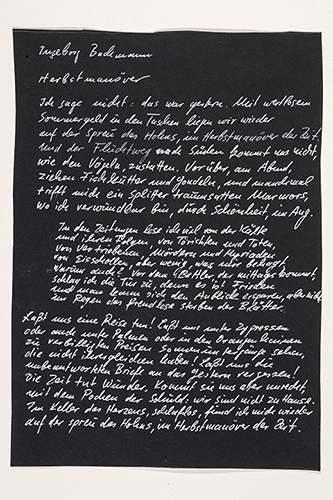 Ingeborg Bachmann
Herbstmanöver
Ich sage nicht: das war gestern. Mit wertlosem
Sommergeld in den Taschen liegen wir wieder
auf der Spreu des Hohns, im Herbstmanöver der Zeit.
Und der Fluchtweg nach Süden kommt uns nicht,
wie den Vögeln, zustatten. Vorüber, am Abend,
ziehen Fischkutter und Gondeln, und manchmal
trifft mich ein Splitter traumsatten Marmors,
wo ich verwundbar bin, durch Schönheit, im Aug.
In den Zeitungen lese ich viel von der Kälte
und ihren Folgen, von Törichten und Toten,
von Vertriebenen, Mördern und Myriaden
von Eisschollen, aber wenig, was mir behagt.
Warum auch? Vor dem Bettler, der mittags kommt,
schlag ich die Tür zu, denn es ist Frieden
und man kann sich den Anblick ersparen, aber nicht
im Regen das freudlose Sterben der Blätter.
Laßt uns eine Reise tun! Laßt uns unter Zypressen
oder auch unter Palmen oder in den Orangenhainen
zu verbilligten Preisen Sonnenuntergänge sehen,
die nicht ihresgleichen haben! Laßt uns die
unbeantworteten Briefe an das Gestern vergessen!
Die Zeit tut Wunder. Kommt sie uns aber unrecht,
mit dem Pochen der Schuld: wir sind nicht zu Hause.
Im Keller des Herzens, schlaflos, find ich mich wieder
auf der Spreu des Hohns, im Herbstmanöver der Zeit.